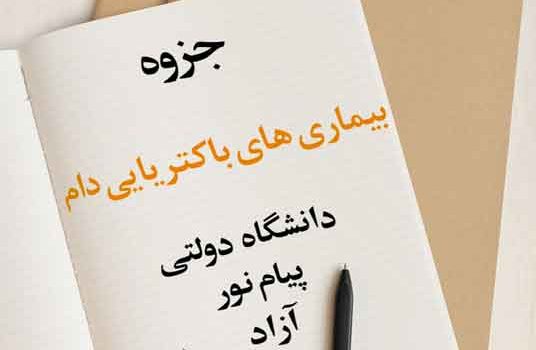 جزوه
بیماری های باکتریایی دام
دانشگاه دولتی
پیام نور
آزاد